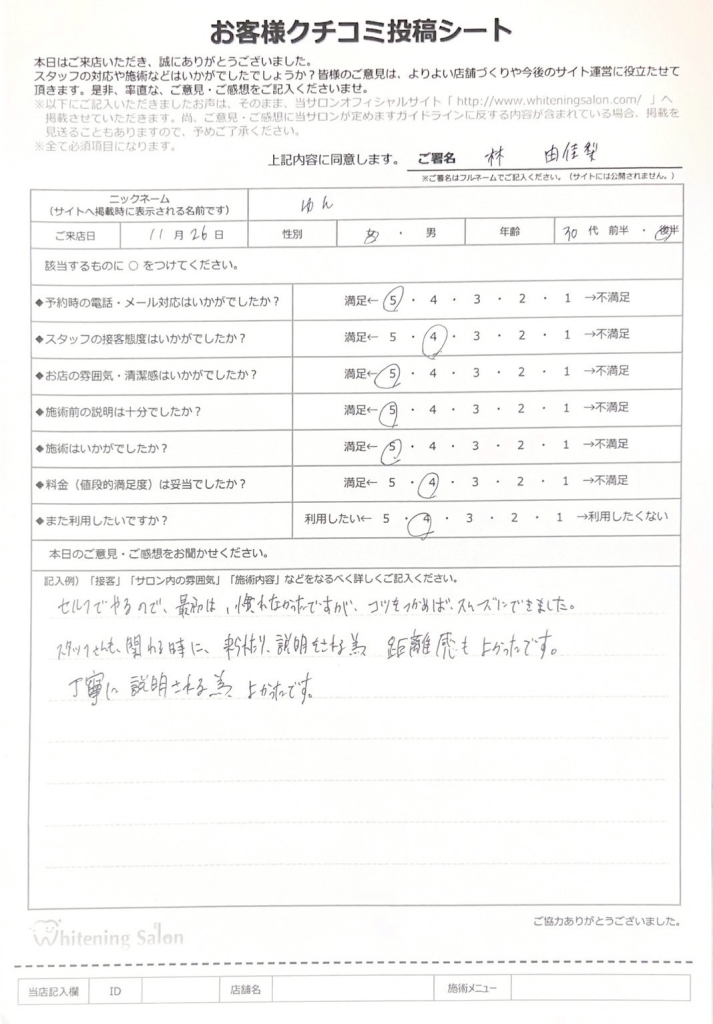 お客様クチコミ投稿シート
本日はご来店いただき、誠にありがとうございました。
スタッフの対応や施術などはいかがでしたでしょうか？皆様のご意見は、よりよい店舗づくりや今後のサイト運営に役立たせて
頂きます。是非、率直な、ご意見・ご感想をご記入くださいませ。
※以下にご記入いただきましたお声は、そのまま、当サロンオフィシャルサイト「 http://www.whiteningsalon.com/ 」へ
掲載させていただきます。尚、ご意見・ご感想に当サロンが定めますガイドラインに反する内容が含まれている場合、掲載を
見送ることもありますので、予めご了承ください。
※全て必須項目になります。
上記内容に同意します。 ご署名 林 由佳梨
※ご署名はフルネームでご記入ください。（サイトには公開されません。）
ニックネーム
（サイトへ掲載時に表示される名前です） ゆん
ご来店日 11 月 26 日 性別 女 ・ 男 年齢 30 代 前半 ・ 後半
該当するものに ○ をつけてください。
◆予約時の電話・メール対応はいかがでしたか？ 満足← 5 ・ 4 ・ 3 ・ 2 ・ 1 →不満足
◆スタッフの接客態度はいかがでしたか？ 満足← 5 ・ 4 ・ 3 ・ 2 ・ 1 →不満足
◆お店の雰囲気・清潔感はいかがでしたか？ 満足← 5 ・ 4 ・ 3 ・ 2 ・ 1 →不満足
◆施術前の説明は十分でしたか？ 満足← 5 ・ 4 ・ 3 ・ 2 ・ 1 →不満足
◆施術はいかがでしたか？ 満足← 5 ・ 4 ・ 3 ・ 2 ・ 1 →不満足
◆料金（値段的満足度）は妥当でしたか？ 満足← 5 ・ 4 ・ 3 ・ 2 ・ 1 →不満足
◆また利用したいですか？ 利用したい← 5 ・ 4 ・ 3 ・ 2 ・ 1 →利用したくない
本日のご意見・ご感想をお聞かせください。
記入例）「接客」「サロン内の雰囲気」「施術内容」などをなるべく詳しくご記入ください。
セルフでやるので、最初は、慣れなかったですが、コツをつかめば、スムーズにできました。
スタッフさんも、関わる時に、来られたり、説明をされる為 距離感もよかったです。
丁寧に説明される為 よかったです。
ご協力ありがとうございました。
Whitening Salon
当店記入欄 ID 店舗名 施術メニュー